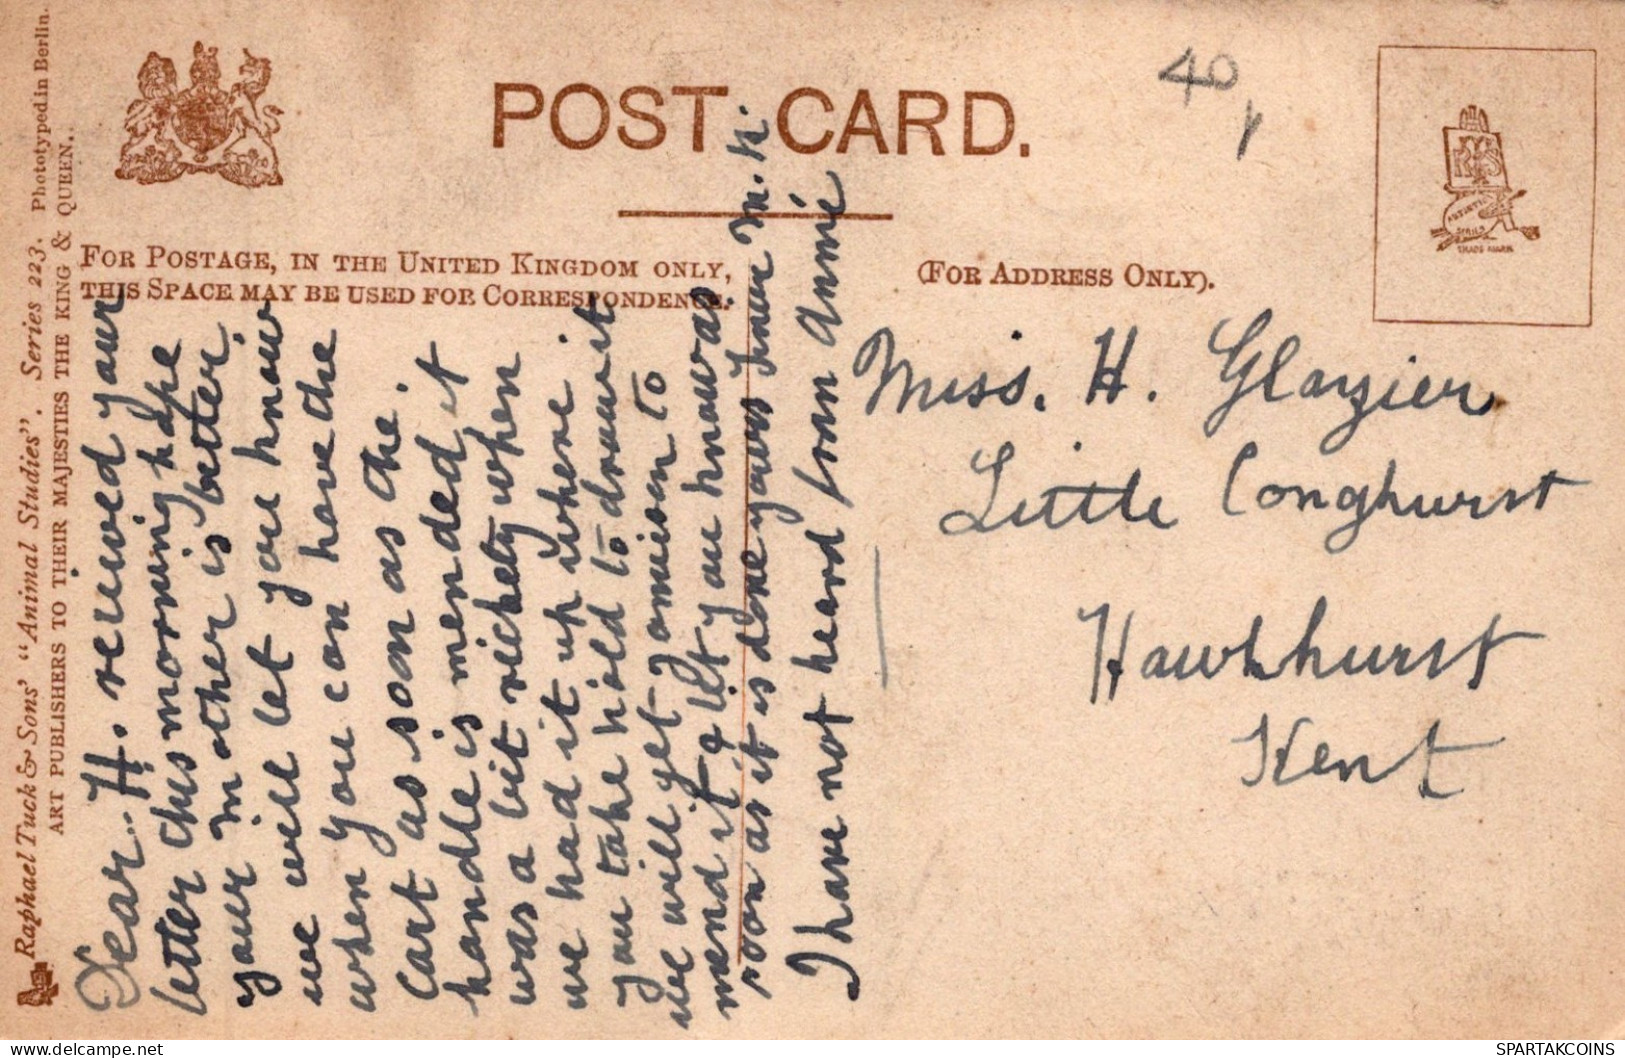 POST CARD.
FOR POSTAGE, IN THE UNITED KINGDOM ONLY,
THIS SPACE MAY BE USED FOR CORRESPONDENCE.
(FOR ADDRESS ONLY).
40
Raphael Tuck & Sons' "Animal Studies". Series 223. Phototyped in Berlin.
ART PUBLISHERS TO THEIR MAJESTIES THE KING & QUEEN.
Dear. H. received your
letter this morning hope
your mother is better
we will let you know
when you can have the
cart as soon as the.
handle is mended it
was a bit rickety when
we had it up where
you take hold to draw it
we will get to
mend it & let you know as
soon as it is done yours M. H.
I have not heard from Annie
Miss. H. Glazier
Little Conghurst
Hawkhurst
Kent
ARTISTIC
SERIES
TRADE MARK
SPARTAKCOINS
DELCAMPE.NET